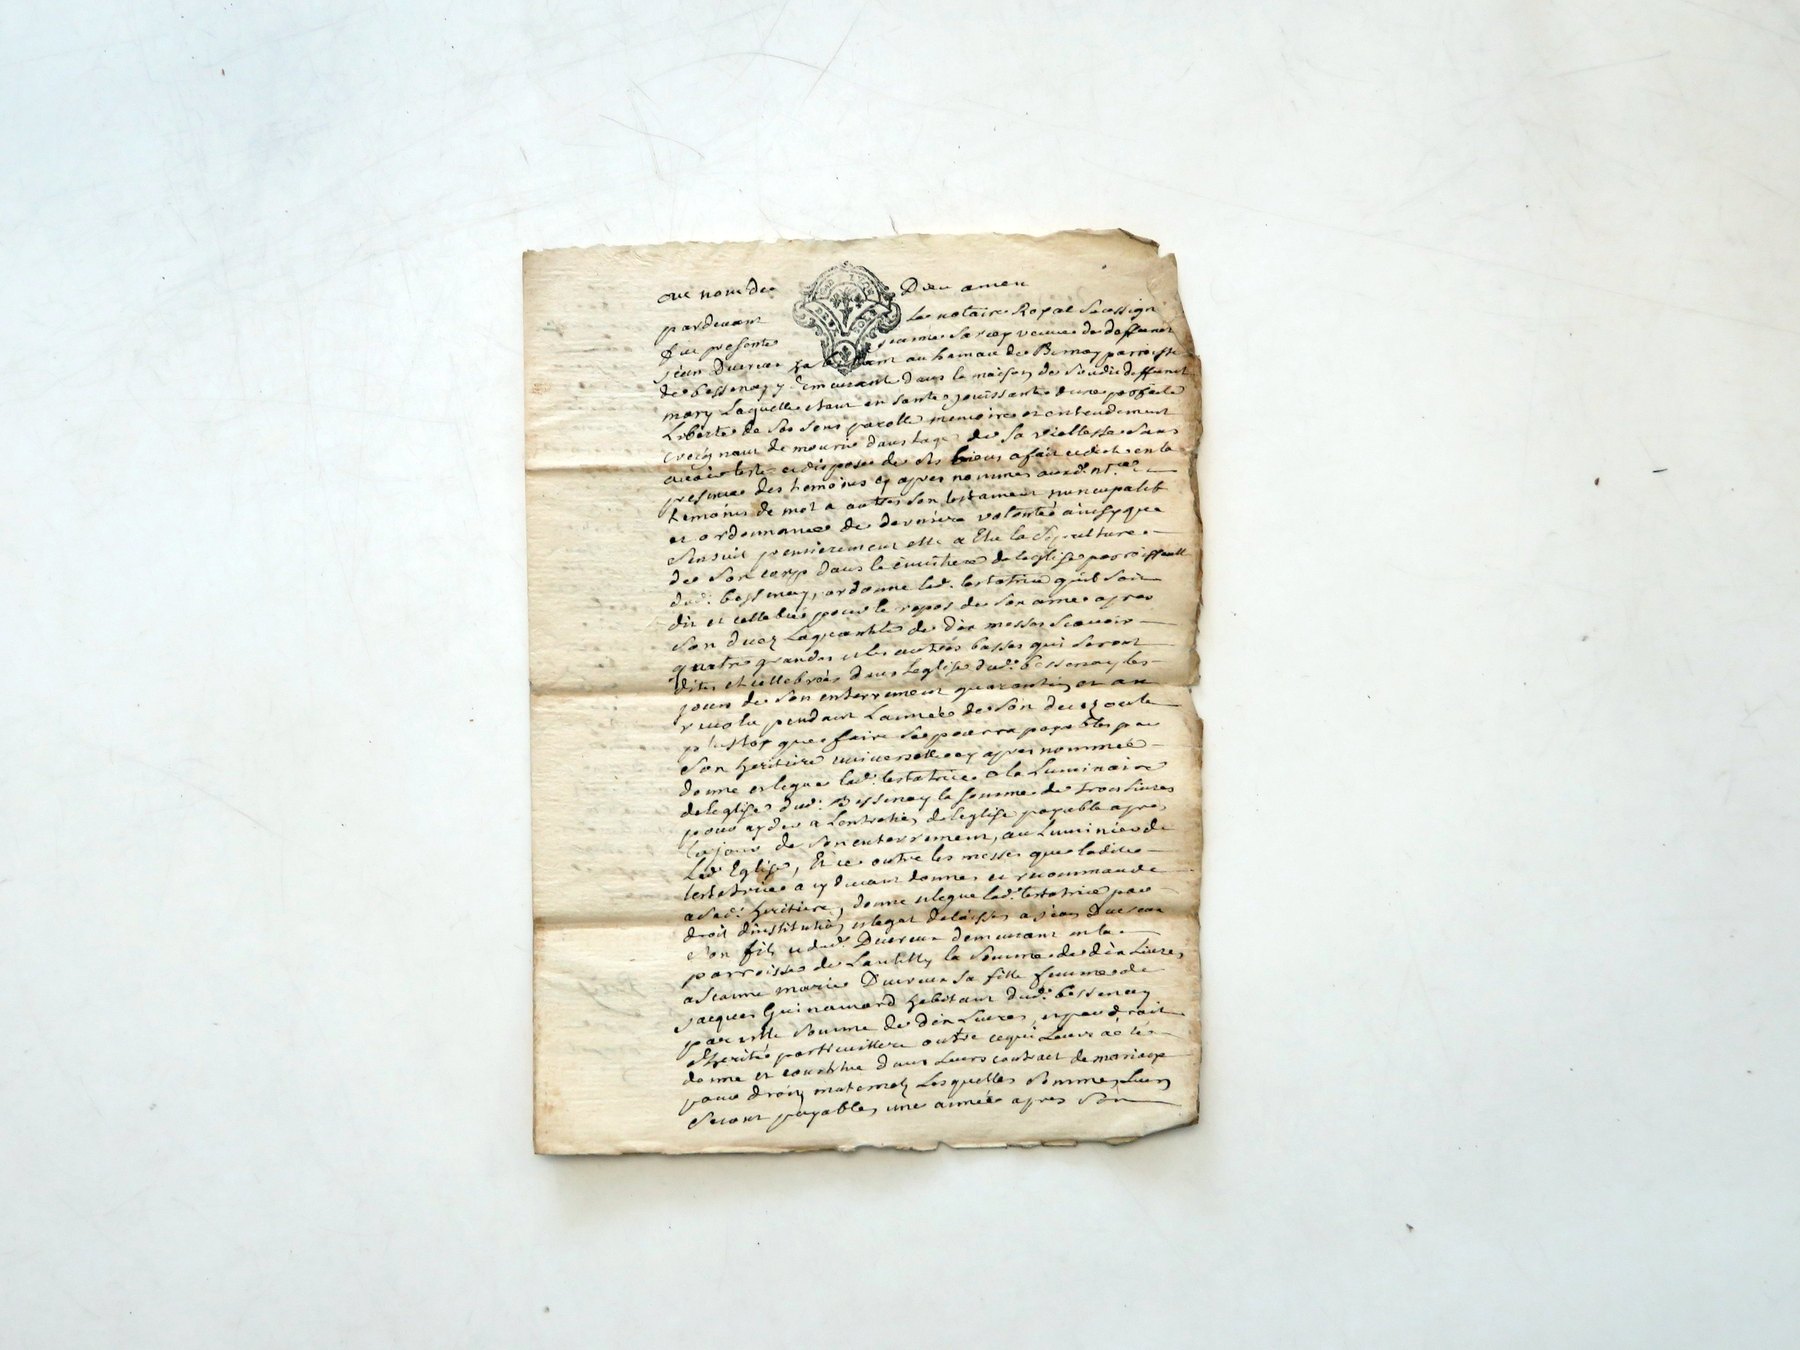 au nom de Dieu amen
pardevant Le notaire Royal Soussign
fut presente jeanne Sarcey veuve de deffunct
jean Ducreux habitant au hamau de Bernay parroisse
de bessenay y demeurante dans la maison de Sondit deffunct
mary Laquelle etant en Sante jouissante dune parfaite
Liberté de Ses Sens parolle memoire et entendement
creignant de mourir dans lage de Sa viellesse Sans
avoir testé et disposé de Ses biens a fait et dicté en la
presence des temoins cy apres nommes aud. not.re
temoins de mot a autres Son testament nuncupatif
et ordonnance de derniere volonté ainsy que
Sensuit premierement elle a Elu la Sepulture
de Son corp dans le cimitiere de leglise parroissialle
dud. bessenay, ordonne lad. testatrice quil Soit
dit et cellebré pour le repos de Son ame apres
Son decez Laquantité de dix messes Scavoir
quatre grandes et les autres basses qui Seront
dites et cellebrées dans Leglise dud. bessenay les
jours de Son enterrement quarantin et an
revolu pendant Lannée de Son decez ou le
plustot que faire Se pourra payables par
Son heritiere universelle cy apres nommée
donne et legue lad. testatrice a la Luminaire
de leglise dud. Bessenay la Somme de trois livres
pour ayder a Lentretien de leglise payable apres
le jour de Son enterrement, au Luminier de
Lad. Eglise, Et ce outre les messes que ladite
testatrice a cy devant donnes et recommandé
a Sad. heritiere, donne et legue lad. testatrice par
droit dinstitution et legat delaisse a jean Ducreux
Son fils et dud. Ducreux demeurant en la
parroisse de Santilly la Somme de dix Livres
a jeanne marie Ducreux Sa fille femme de
jacques Guinamard habitant dud. bessenay
pareille Somme de dix Livres, et par droit
dheritié particulliere outre cequi Leurs a eté
donné et constitué dans Leurs contract de mariage
pour droits maternels Lesquelles Sommes Leurs
Seront payables une année apres Son